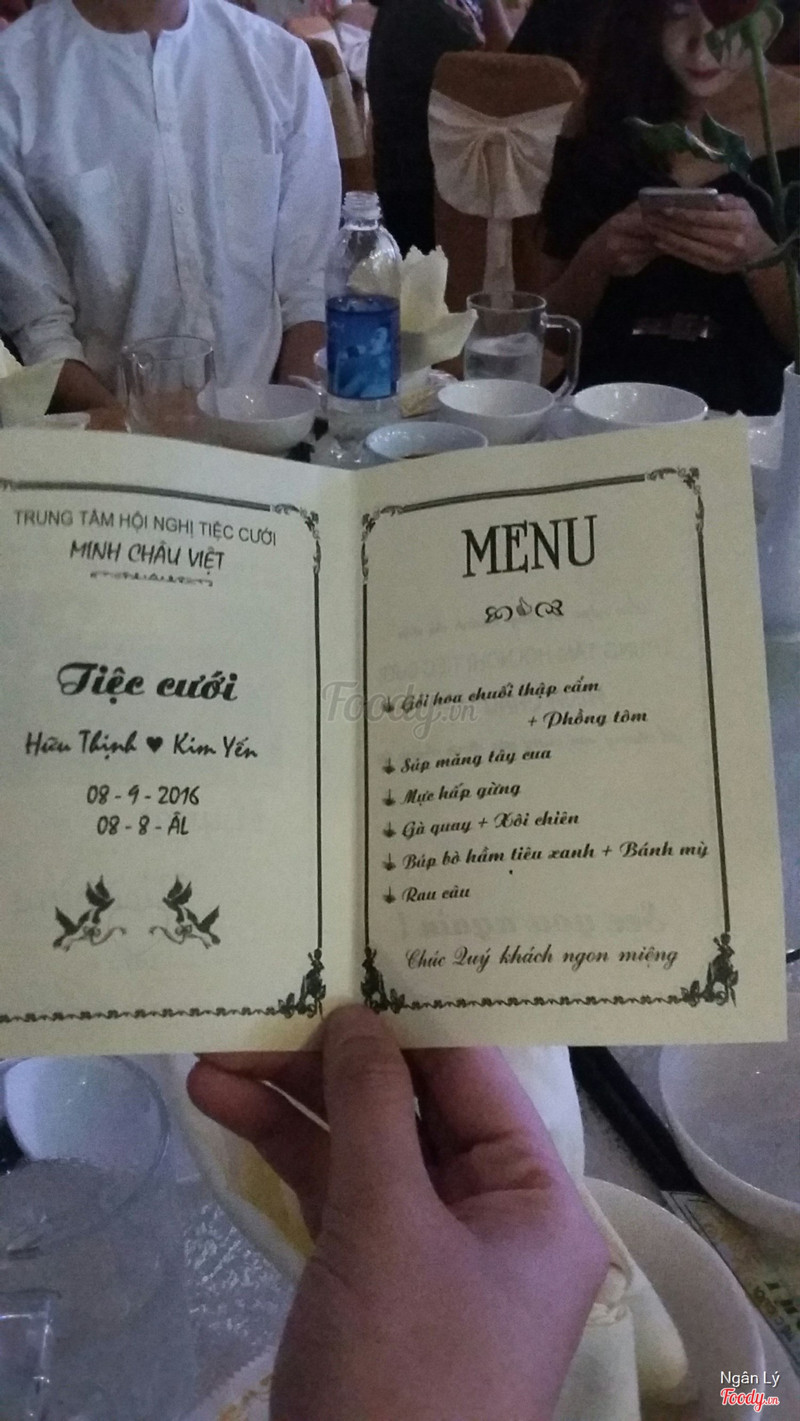 TRUNG TÂM HỘI NGHỊ TIỆC CƯỚI
MINH CHÂU VIỆT
Tiệc cưới
Hữu Thịnh ♥ Kim Yến
08 - 9 - 2016
08 - 8 - ÂL
MENU
Gỏi hoa chuối thập cẩm
+ Phồng tôm
Súp măng tây cua
Mực hấp gừng
Gà quay + Xôi chiên
Búp bò hầm tiêu xanh + Bánh mỳ
Rau câu
Chúc Quý khách ngon miệng
See you again !
Foody.vn
Ngân Lý
Foody.vn